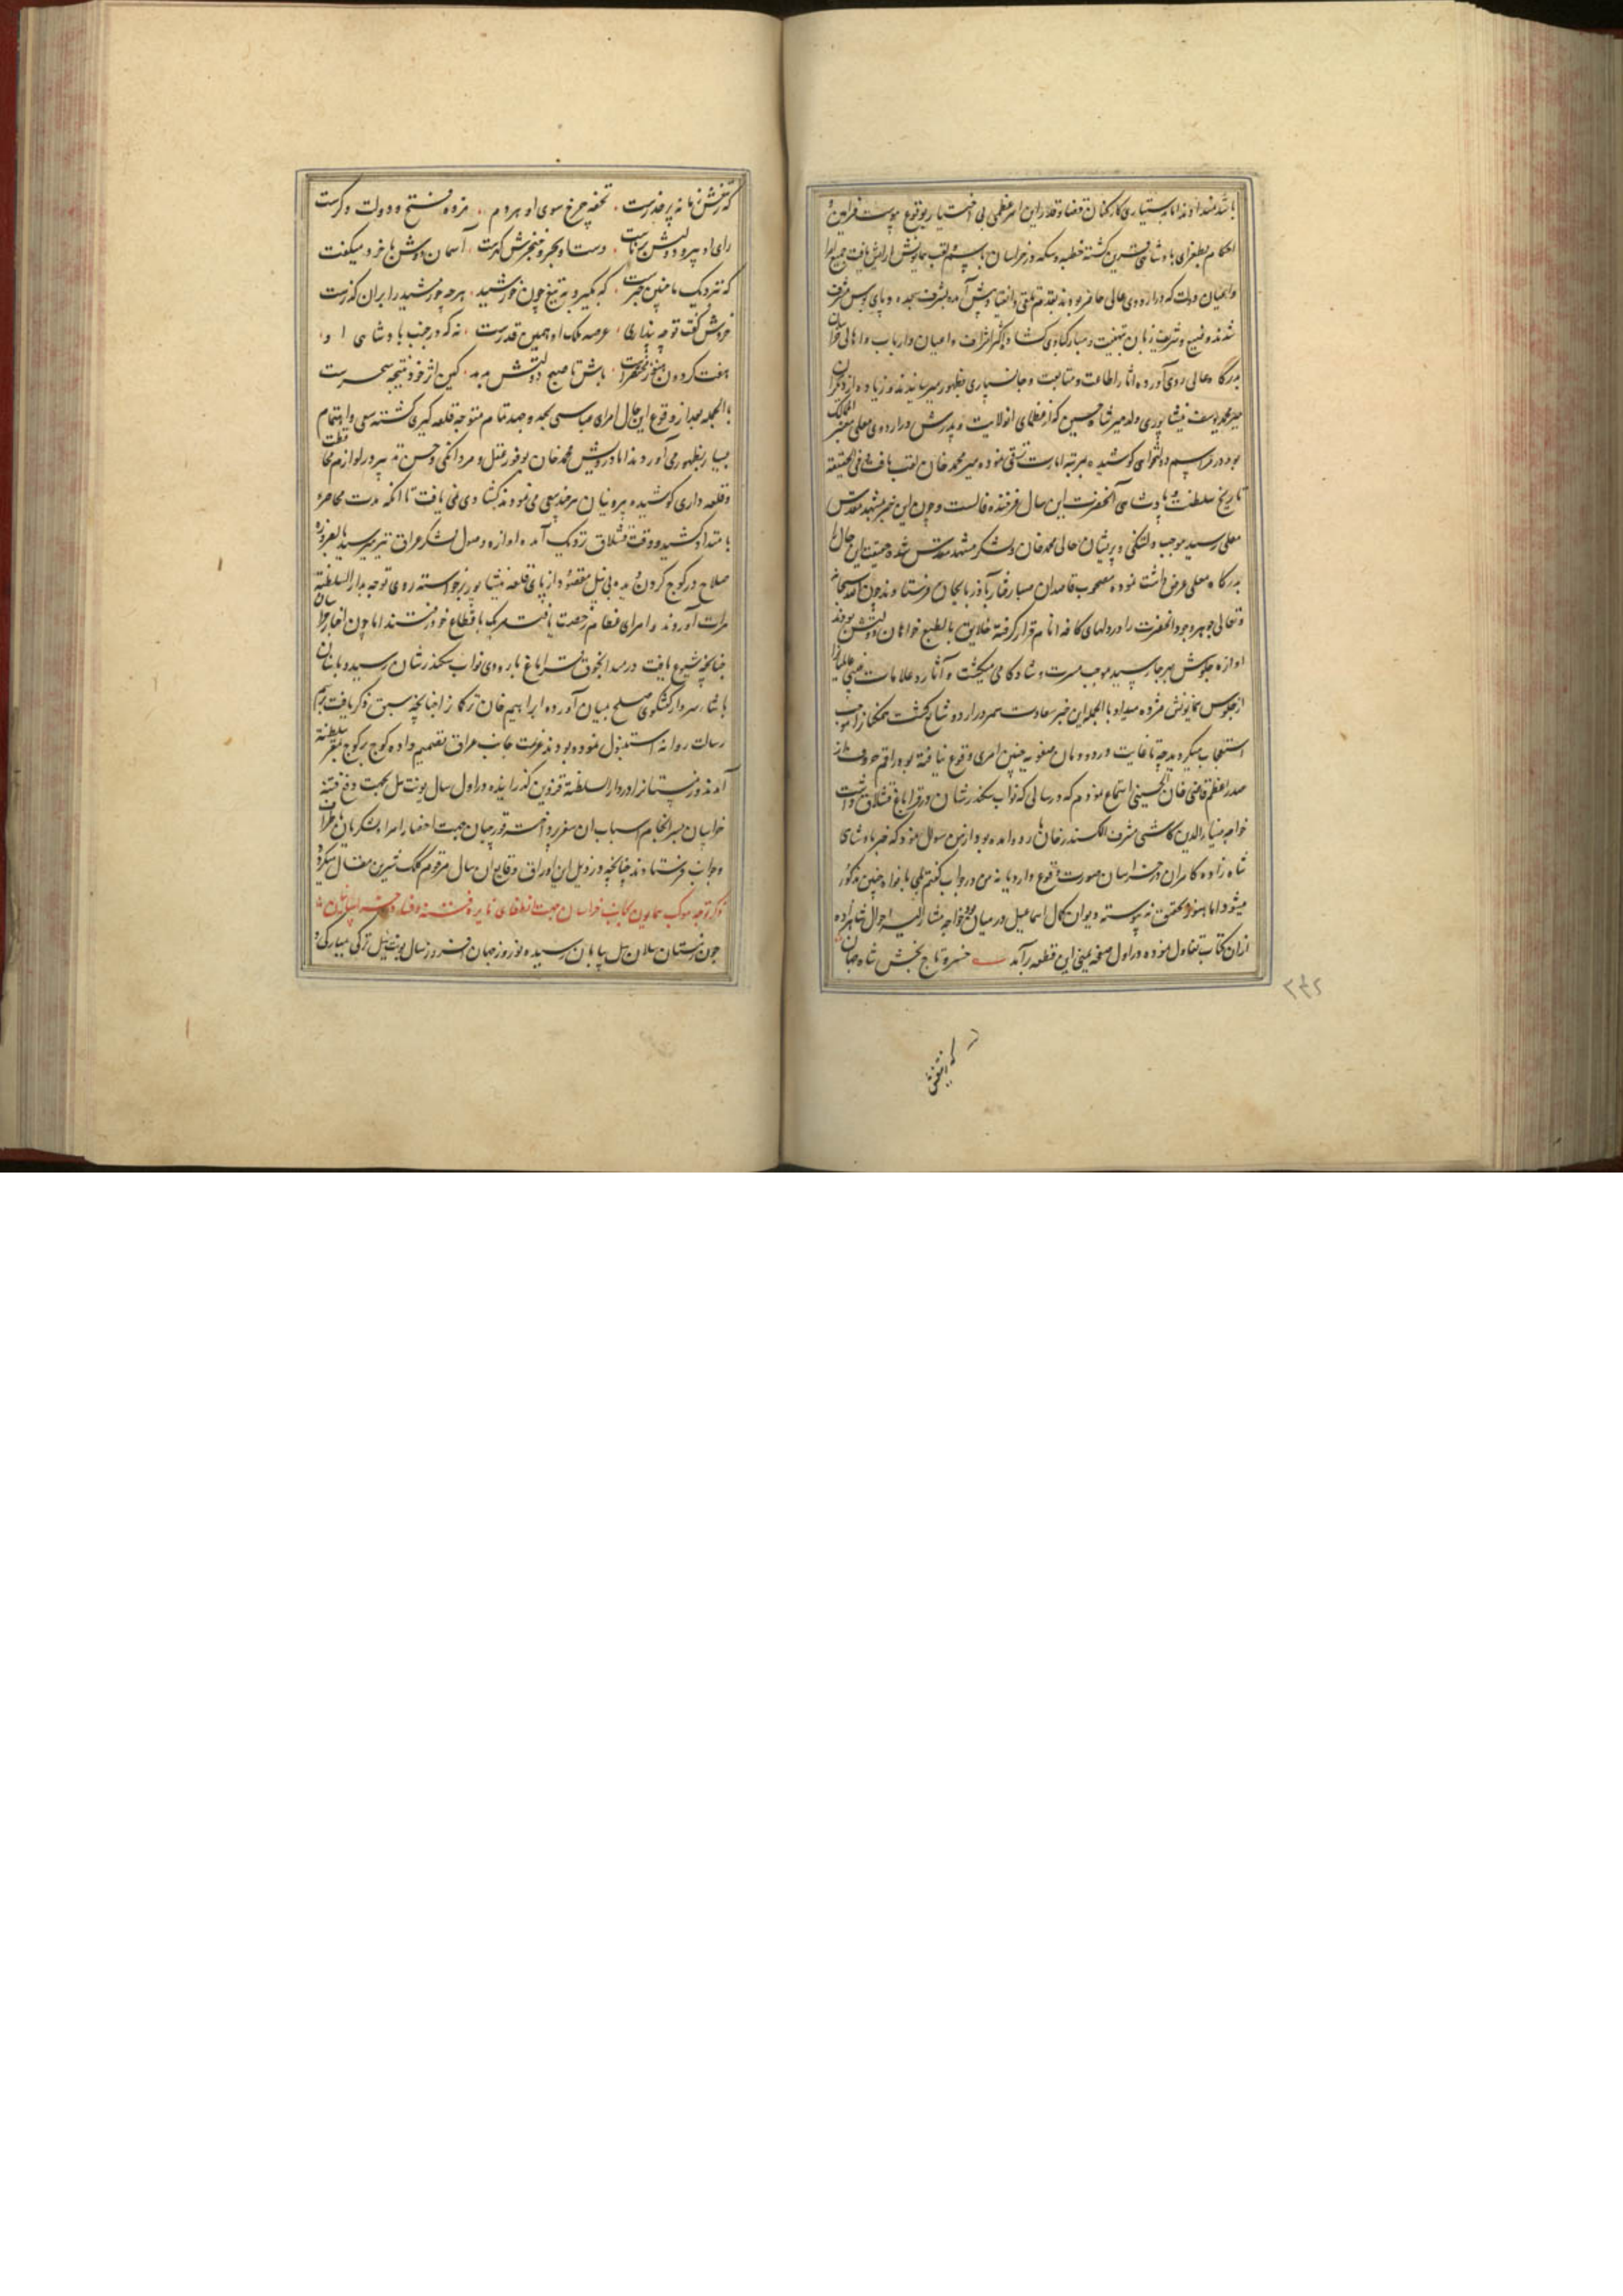 باشد شدند اما بدستیاری کارکنان قضا و قدر این امر عظمی بی اختیار بوقوع پیوست فرامین و
احکام بطغرای پادشاهی مزین گشته خطبه و سکه در خراسان باسم و لقب همایونش آرایش یافت جمیع امرا
و اعیان دولت که در اردوی عالی حاضر بودند بقدم و انقیاد پیش آمده بشرف سجده و پای بوس مشرف
شدند و وضیع و شریف زبان بتهنیت و مبارکبادی گشاد و اکثر اشراف و اعیان و ارباب و اهالی خراسان
بدرگاه عالی روی آورده آثار اطاعت و متابعت و جانسپاری بظهور میرسانیدند و زیاده از دیگران
میر محمد یوسف نیشابوری ولد میر شاه حسین که از عظمای انولایت و پدرش در اردوی معلی معتبر
بود در مراسم دولتخواهی کوشیده بمرتبه امارت ترقی نموده میر محمد خان لقب یافت و فی الحقیقه
تاریخ سلطنت و پادشاهی آنحضرت این سال فرخنده فالست و چون این خبر بمشهد مقدس
معلی رسید موجب دلتنگی و پریشان حالی محمد خان و لشکر مشهد مقدس شده حقیقت این حال را
بدرگاه معلی عرض داشت نموده مصحوب قاصدان صبا رفتار بآذربایجان فرستادند چون الله سبحانه
و تعالی جوهر وجود انحضرت را در دلهای کافه انام قرار گرفته خلایق بالطبع خواهان دولتش بودند
اوازه جلوس بهر جا رسید موجب مسرت و شادکامی میگشت و آثار و علامات
از جلوس همایونش مژده میداد بالجمله این خبر سعادت ثمر در اردو شایع گشت همگنان را موجب
استعجاب میگردید چه تا غایت در دودمان صفویه چنین امری وقوع نیافته بود راقم حروف از
صدر اعظم قاضی خان الحسینی استماع نمودم که در سالی که نواب سکندرشان در قراباغ قشلاق داشت
خواجه ضیاء الدین کاشی مشرف الکسندر خان باردو امده بود از من سوال نمود که خبر پادشاهی
شاه زاده کامران در خراسان صورت وقوع دارد یا نه من در جواب گفتم بلی بافواه چنین مذکور
میشود اما هنوز بتحقیق نه پیوسته دیوان کمال اسماعیل در میان بود خواجه مشارالیه احوال شاهزاده
ازان کتاب تفاول نموده در اول صفحه یمنی این قطعه برآمد خسرو تاج بخش شاه جهان
که ز تیغش زمانه پر حذرست تحفه چرخ سوی او هر دم مژده فتح و دولت دگرست
رای او پیر و دولتش برناست دست او بحر و خنجرش گهرست آسمان دوش با خرد میگفت
که نزدیک ما چنین خبرست که بگیرد به تیغ چون خورشید هر چه خورشید را بران گذرست
خردش گفت تو چه پنداری عرصه ملک او همین قدرست نه که در جنب پادشاهی او
هفت گردون هنوز مختصرات باش تا صبح دولتش بدمد کین اثر خود نتیجه سحرست
بالجمله بعد از وقوع این حال امرای عباسی بجد و جهد تمام متوجه قلعه گیری گشته سعی و اهتمام
بسیار بظهور می آوردند اما درویش محمد خان بوفور عقل و مردانگی و حسن تدبیر در لوازم محافظت
و قلعه داری کوشیده بیرونیان هر چند سعی می نمودند گشادی نمی یافت تا انکه مدت محاصره
بامتداد کشید و وقت قشلاق نزدیک آمده اوازه وصول لشکر عراق نیز میرسید بالضروره
صلاح در کوچ کردن دیده بی نیل مقصود از پای قلعه نیشابور برخواسته روی توجه بدار السلطنه
هرات آوردند و امرای عظام رخصت یافته هر یک باقطاع خود رفتند اما چون اخبار خراسان
چنانچه شیوع یافت در قراباغ باردوی نواب سکندرشان رسید و با عثمان
پاشاء سردار گفتگوی صلح بمیان آورده ابراهیم خان ترکمان را چنانچه سبق ذکر یافت برسم
رسالت روانه استنبول نموده بودند عزیمت جانب عراق تصمیم داده کوچ بر کوچ بمقر سلطنه
آمدند و زمستانرا در دار السلطنه قزوین گذرانیده در اول سال یونت ئیل بجهت دفع فتنه
خراسان بسرانجام اسباب ان سفر پرداخته قورچیان بجهت احضار امرا و لشکریان باطراف
و جوانب فرستادند چنانچه در ذیل این اوراق وقایع ان سال مرقوم کلک شیرین مقال میگردد
ذکر توجه موکب همایون بجانب خراسان بجهت انطفای نایره فتنه و فساد
چون زمستان ییلان ئیل بپایان رسیده نوروز جهان افروز سال یونت ئیل ترکی بمبارکی و
۲۴۲
که ز تیغش